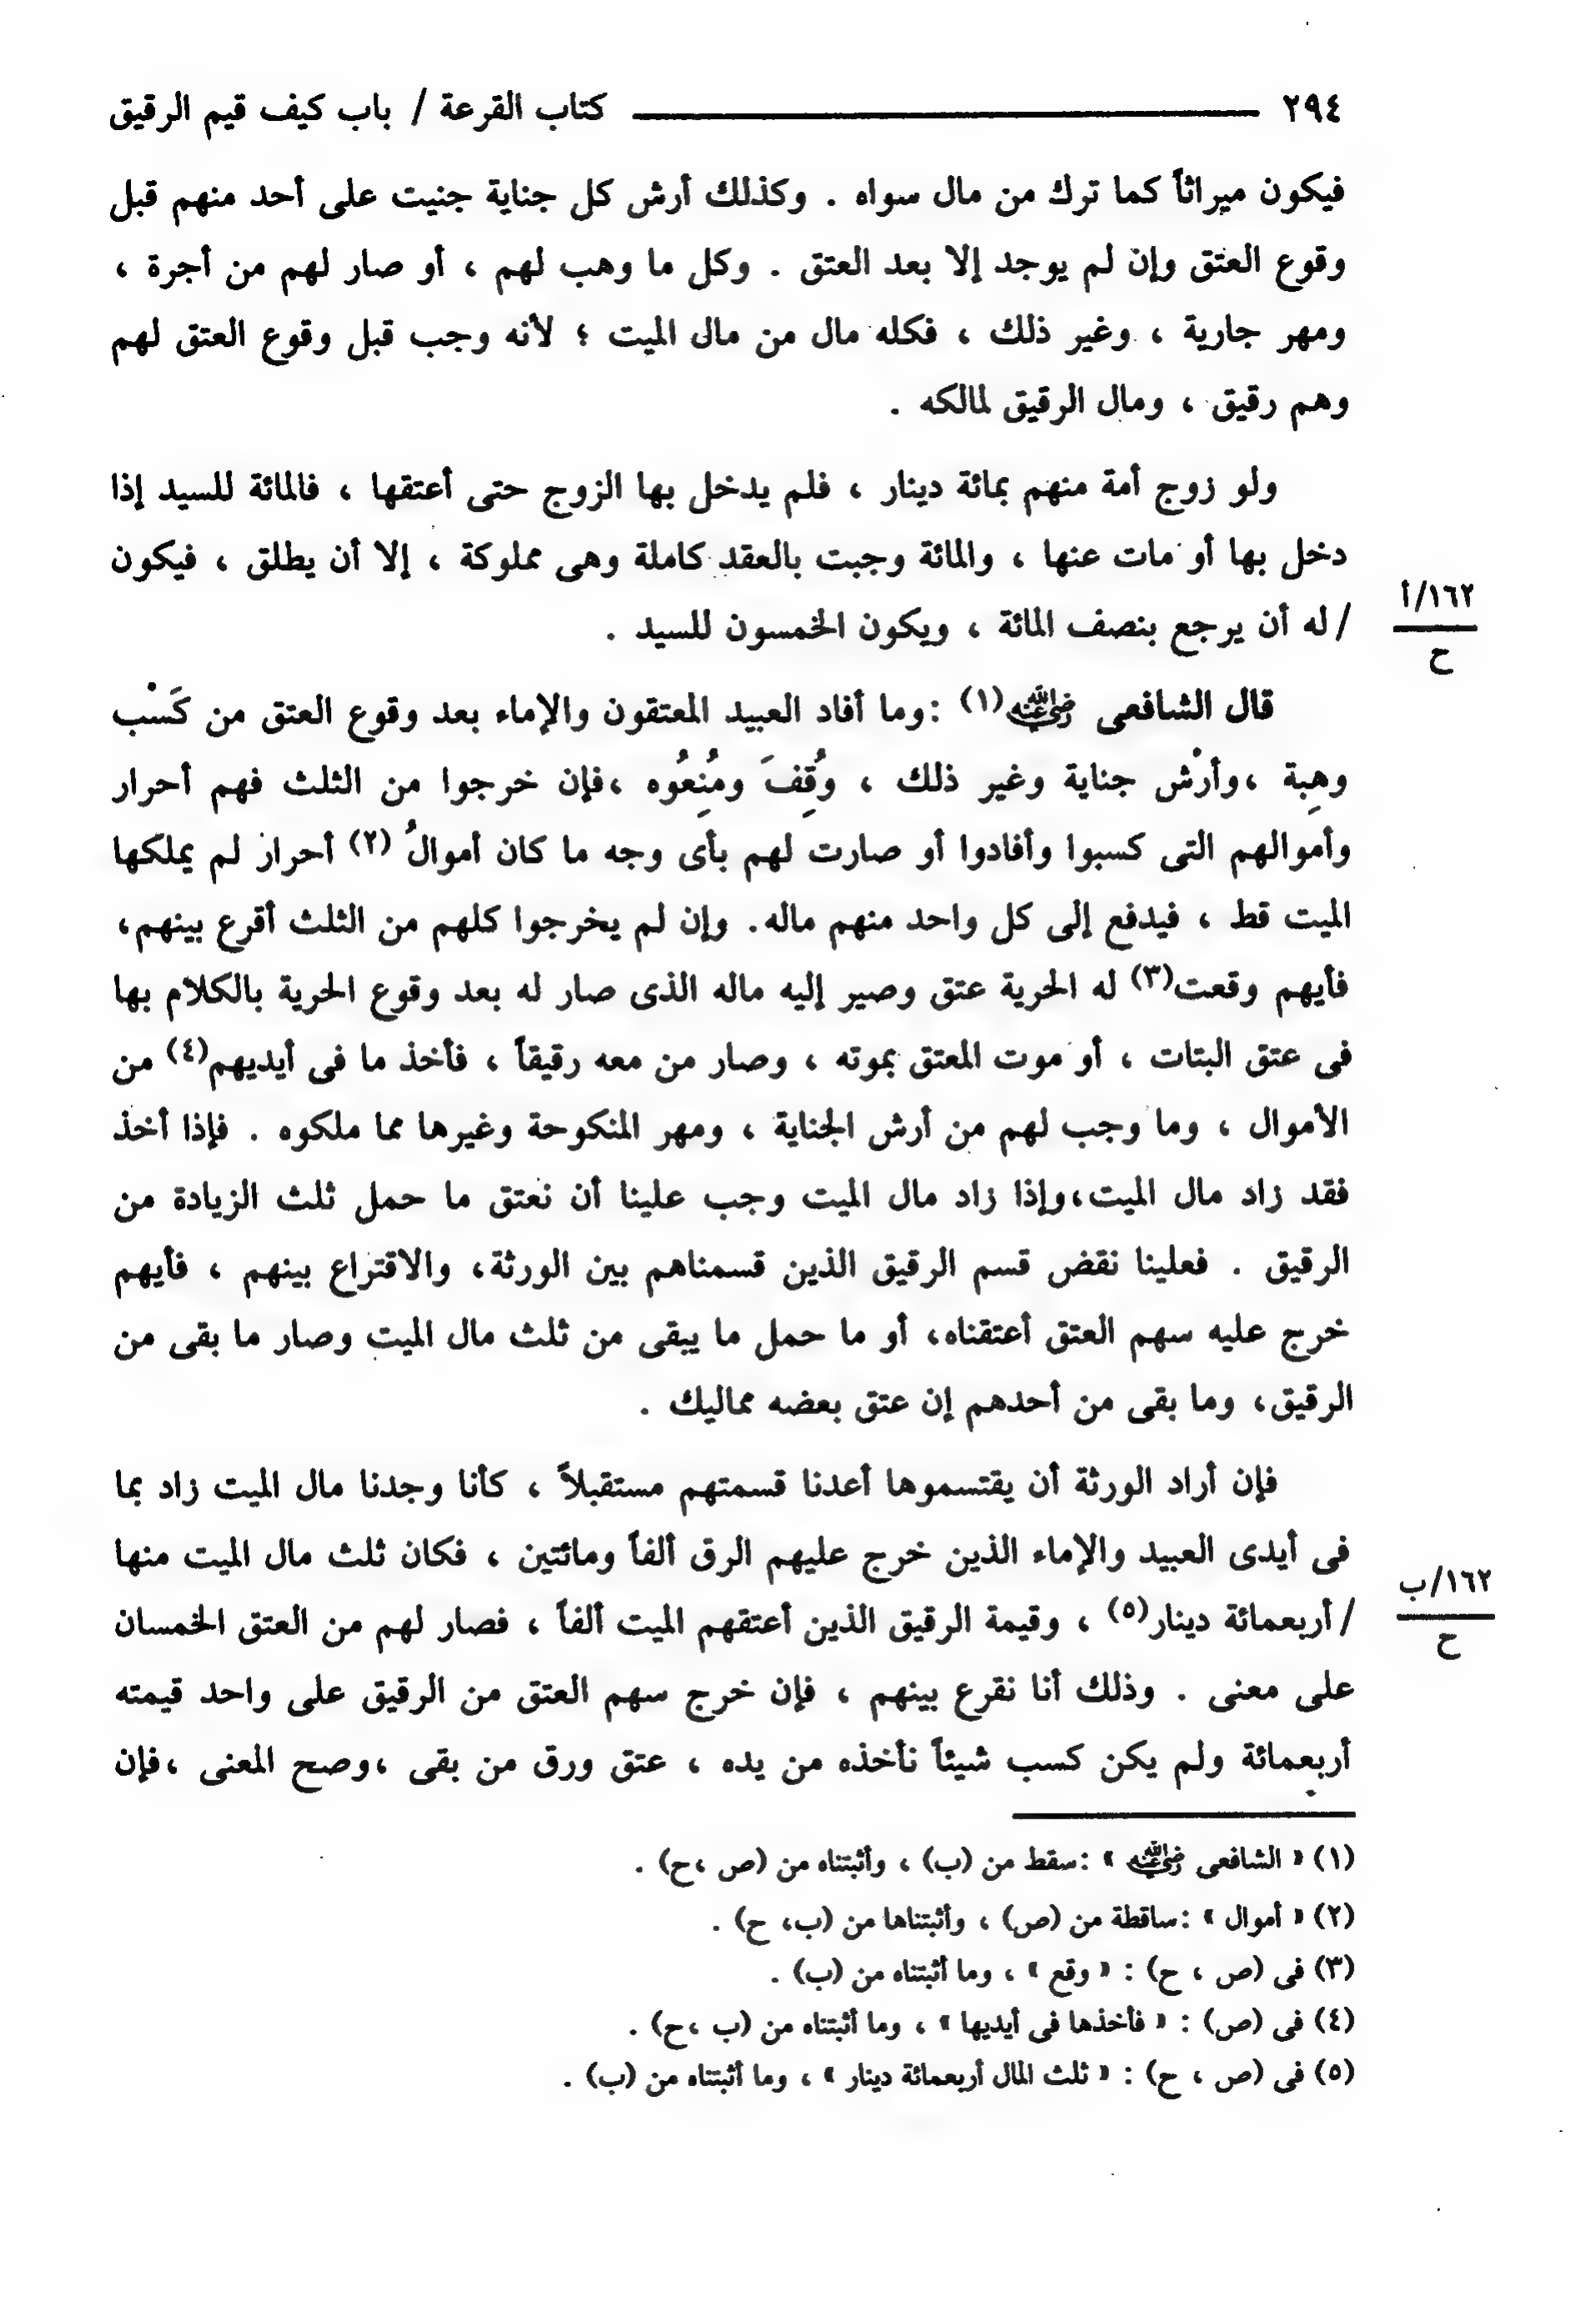 ٢٩٤ كتاب القرعة / باب كيف قيم الرقيق
فيكون ميراثاً كما ترك من مال سواه . وكذلك أرش كل جناية جنيت على أحد منهم قبل
وقوع العتق وإن لم يوجد إلا بعد العتق . وكل ما وهب لهم ، أو صار لهم من أجرة ،
ومهر جارية ، وغير ذلك ، فكله مال من مال الميت ؛ لأنه وجب قبل وقوع العتق لهم
وهم رقيق ، ومال الرقيق لمالكه .
ولو زوج أمة منهم بمائة دينار ، فلم يدخل بها الزوج حتى أعتقها ، فالمائة للسيد إذا
دخل بها أو مات عنها ، والمائة وجبت بالعقد كاملة وهى مملوكة ، إلا أن يطلق ، فيكون
/ له أن يرجع بنصف المائة ، ويكون الخمسون للسيد .
١٦٢/أ
ح
قال الشافعى رضي الله عنه (١) :وما أفاد العبيد المعتقون والإماء بعد وقوع العتق من كَسْب
وهِبة ،وأرْش جناية وغير ذلك ، وُقِفَ ومُنِعُوه ،فإن خرجوا من الثلث فهم أحرار
وأموالهم التى كسبوا وأفادوا أو صارت لهم بأى وجه ما كان أموالُ (٢) أحرار لم يملكها
الميت قط ، فيدفع إلى كل واحد منهم ماله. وإن لم يخرجوا كلهم من الثلث أقرع بينهم،
فأيهم وقعت(٣) له الحرية عتق وصير إليه ماله الذى صار له بعد وقوع الحرية بالكلام بها
فى عتق البتات ، أو موت المعتق بموته ، وصار من معه رقيقاً ، فأخذ ما فى أيديهم(٤) من
الأموال ، وما وجب لهم من أرش الجناية ، ومهر المنكوحة وغيرها مما ملكوه . فإذا أخذ
فقد زاد مال الميت،وإذا زاد مال الميت وجب علينا أن نعتق ما حمل ثلث الزيادة من
الرقيق . فعلينا نقض قسم الرقيق الذين قسمناهم بين الورثة، والاقتراع بينهم ، فأيهم
خرج عليه سهم العتق أعتقناه، أو ما حمل ما يبقى من ثلث مال الميت وصار ما بقى من
الرقيق، وما بقى من أحدهم إن عتق بعضه مماليك .
فإن أراد الورثة أن يقتسموها أعدنا قسمتهم مستقبلاً ، كأنا وجدنا مال الميت زاد بما
فى أيدى العبيد والإماء الذين خرج عليهم الرق ألفاً ومائتين ، فكان ثلث مال الميت منها
/ أربعمائة دينار(٥) ، وقيمة الرقيق الذين أعتقهم الميت ألفاً ، فصار لهم من العتق الخمسان
١٦٢/ب
ح
على معنى . وذلك أنا نقرع بينهم ، فإن خرج سهم العتق من الرقيق على واحد قيمته
أربعمائة ولم يكن كسب شيئاً نأخذه من يده ، عتق ورق من بقى ،وصح المعنى ،فإن
(١) « الشافعى رضي الله عنه » :سقط من (ب) ، وأثبتناه من (ص ،ح) .
(٢) « أموال » :ساقطة من (ص) ، وأثبتناها من (ب، ح) .
(٣) فى (ص ، ح) : « وقع » ، وما أثبتناه من (ب) .
(٤) فى (ص) : « فأخذها فى أيديها » ، وما أثبتناه من (ب ،ح) .
(٥) فى (ص ، ح) : « ثلث المال أربعمائة دينار » ، وما أثبتناه من (ب) .